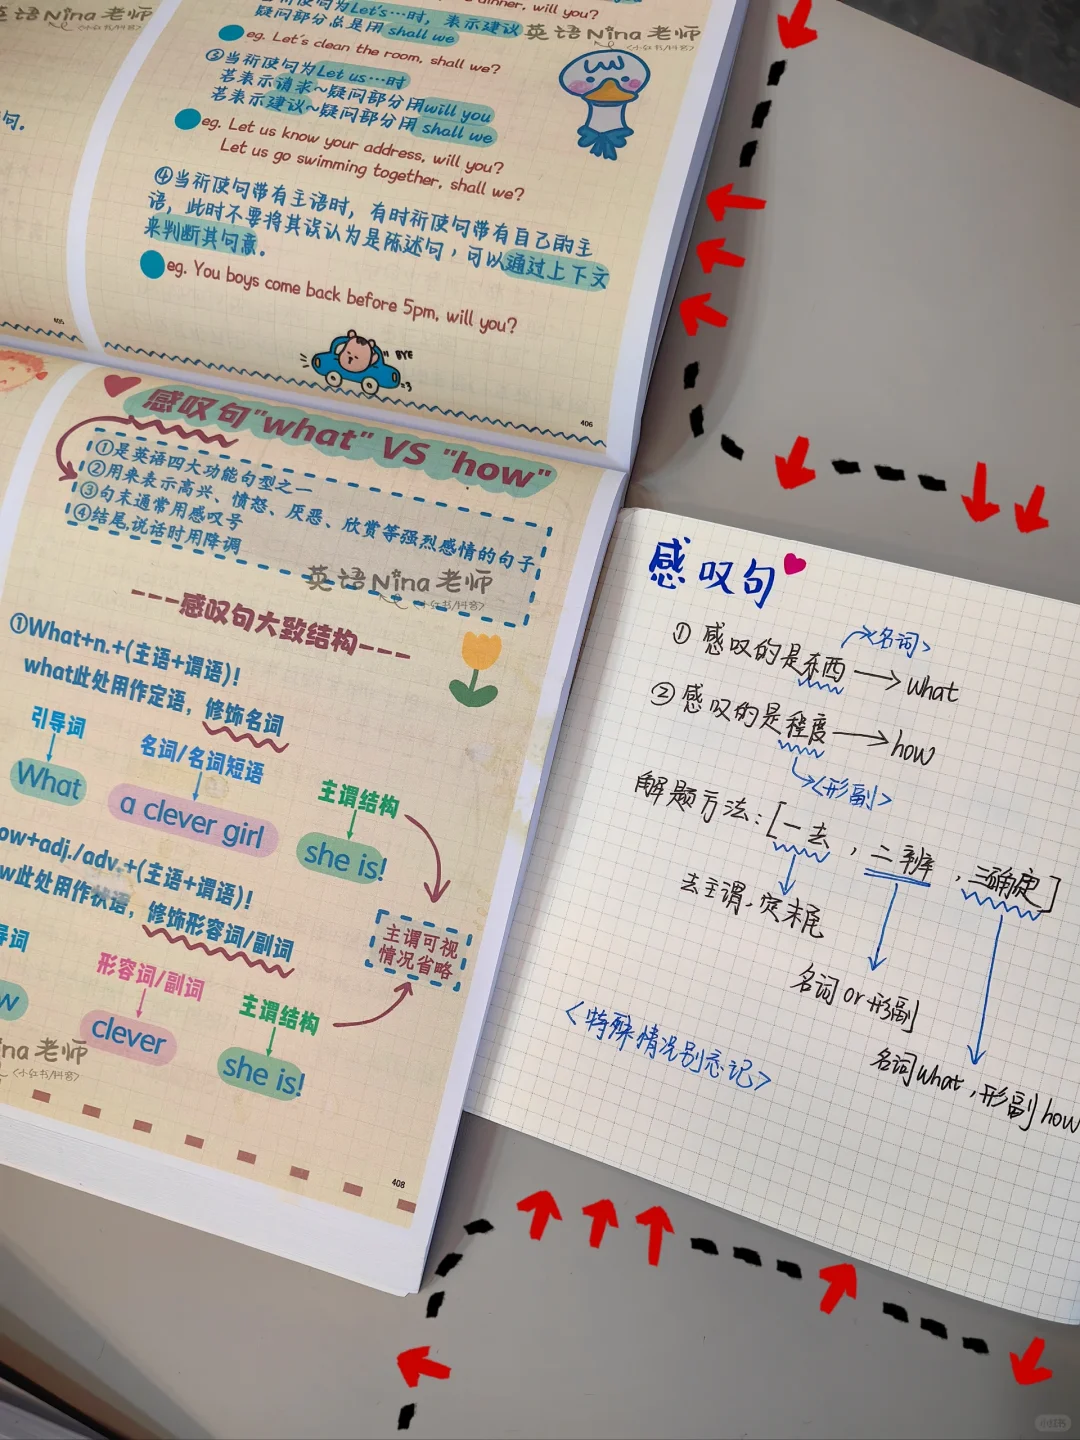 老师
句.
dinner, will you?
祈使句为Let's…时，表示建议
疑问部分总是用 shall we
英语Nina老师
<小红书/抖音>
eg. Let's clean the room, shall we?
③当祈使句为Let us…时
若表示请求~疑问部分用will you
若表示建议~疑问部分用 shall we
eg. Let us know your address, will you?
Let us go swimming together, shall we?
④当祈使句带有主语时，有时祈使句带有自己的主
语，此时不要将其误认为是陈述句，可以通过上下文
来判断其句意.
eg. You boys come back before 5pm, will you?
BYE
405
406
感叹句"what" VS "how"
①是英语四大功能句型之一
②用来表示高兴、愤怒、厌恶、欣赏等强烈感情的句子
③句末通常用感叹号
④结尾,说话时用降调
英语Nina老师
<小红书/抖音>
---感叹句大致结构---
①What+n.+(主语+谓语)!
what此处用作定语，修饰名词
引导词
名词/名词短语
主谓结构
What
a clever girl
she is!
ow+adj./adv.+(主语+谓语)!
w此处用作状语，修饰形容词/副词
主谓可视
情况省略
导词
形容词/副词
主谓结构
w
clever
she is!
ina老师
<小红书/抖音>
408
感叹句
①感叹的是东西→what
<名词>
②感叹的是程度→how
<形副>
解题方法:[一去，二辨，三确定]
去主谓,定末尾
名词or形副
名词what,形副how
<特殊情况别忘记>
小红书